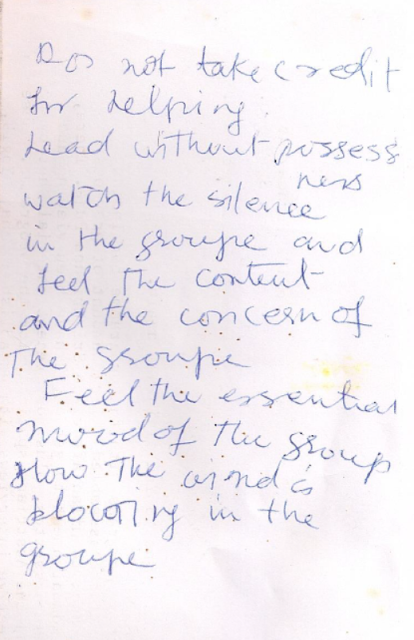 Do not take credit
for helping.
Lead without possess
ness
watch the silence
in the groupe and
feel the content
and the concern of
The groupe
Feel the essential
mood of the group
How The wind is
blowing in the
groupe